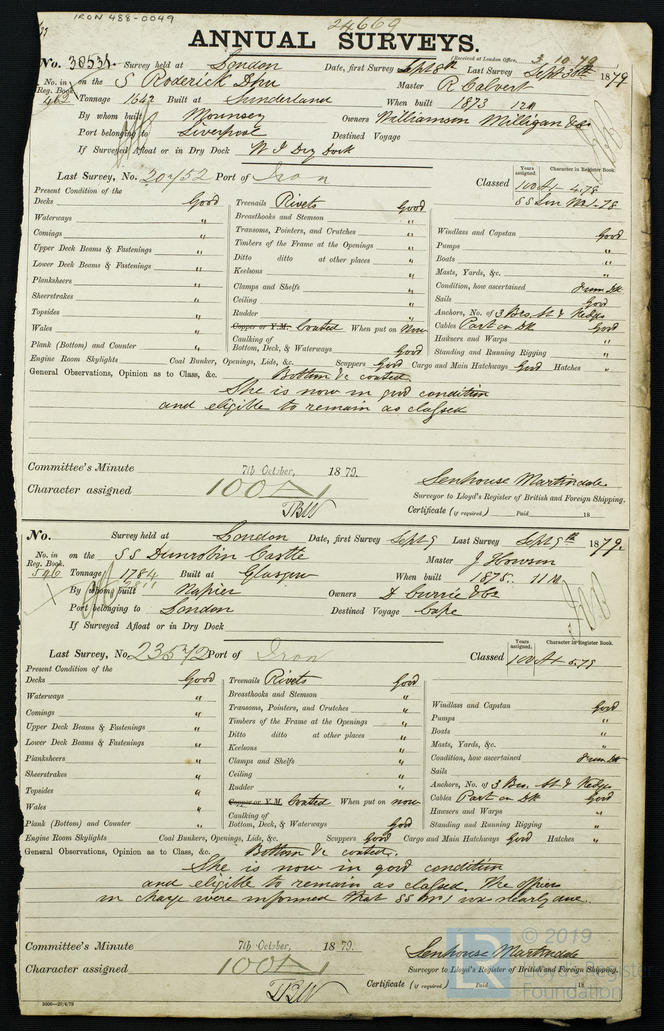 IRON 488-0049
24669
ANNUAL SURVEYS.
(Received at London Office, 3.10.79
No. 30531. Survey held at London Date, first Survey Sept 8th Last Survey Sept 30th 1879
No. in Reg. Book. 462 on the S Roderick Dhu Master R Calvert
Tonnage 1642 Built at Sunderland When built 1873 12m
By whom built Mounsey Owners Williamson Milligan & Co
Port belonging to Liverpool Destined Voyage
If Surveyed Afloat or in Dry Dock W I Dry Dock
Last Survey, No. 20752 Port of Iron Classed
Years assigned. Character in Register Book.
100 A1 4.78
SS Lon No 1-78
Present Condition of the
Decks Good Treenails Rivets Good
Waterways " Breasthooks and Stemson " Windlass and Capstan Good
Comings " Transoms, Pointers, and Crutches " Pumps "
Upper Deck Beams & Fastenings " Timbers of the Frame at the Openings " Boats "
Lower Deck Beams & Fastenings " Ditto ditto at other places " Masts, Yards, &c. "
Planksheers " Keelsons " Condition, how ascertained From Dk
Sheerstrakes " Clamps and Shelfs " Sails Good
Topsides " Ceiling " Anchors, No. of 3 Brs, St & Kedges
Wales " Rudder " Cables Part on Dk Good
Copper or Y.M. Coated When put on Now Hawsers and Warps "
Plank (Bottom) and Counter " Caulking of Bottom, Deck, & Waterways Good Standing and Running Rigging "
Engine Room Skylights Coal Bunker, Openings, Lids, &c. Scuppers Good Cargo and Main Hatchways Good Hatches "
General Observations, Opinion as to Class, &c. Bottom &c coated.
She is now in good condition
and eligible to remain as classed
Committee's Minute 7th October, 1879.
Character assigned 100 A1
Senhouse Martindale
Surveyor to Lloyd's Register of British and Foreign Shipping.
TBW Certificate (if required) Paid 18
No. Survey held at London Date, first Survey Sept 9 Last Survey Sept 9th 1879.
No. in Reg. Book. 546 on the SS Dunrobin Castle Master J Howson
Tonnage 1784 2811 Built at Glasgow When built 1875. 11m
By whom built Napier Owners D Currie & Co
Port belonging to London Destined Voyage Cape
If Surveyed Afloat or in Dry Dock
Last Survey, No. 23572 Port of Iron Classed
Years assigned. Character in Register Book.
100 A1 5.79
Present Condition of the
Decks Good Treenails Rivets Good
Waterways " Breasthooks and Stemson " Windlass and Capstan Good
Comings " Transoms, Pointers, and Crutches " Pumps "
Upper Deck Beams & Fastenings " Timbers of the Frame at the Openings " Boats "
Lower Deck Beams & Fastenings " Ditto ditto at other places " Masts, Yards, &c. "
Planksheers " Keelsons " Condition, how ascertained From Dk
Sheerstrakes " Clamps and Shelfs " Sails
Topsides " Ceiling " Anchors, No. of 3 Brs. St & Kedge
Wales " Rudder " Cables Part on Dk Good
Copper or Y.M. Coated When put on now Hawsers and Warps "
Plank (Bottom) and Counter " Caulking of Bottom, Deck, & Waterways Good Standing and Running Rigging "
Engine Room Skylights Coal Bunker, Openings, Lids, &c. Scuppers Good Cargo and Main Hatchways Good Hatches "
General Observations, Opinion as to Class, &c. Bottom &c coated.
She is now in good condition
and eligible to remain as classed. The officers
in charge were informed that SS No 1 was nearly due
Committee's Minute 7th October, 1879.
Character assigned 100 A1
Senhouse Martindale
Surveyor to Lloyd's Register of British and Foreign Shipping.
TBW Certificate (if required) Paid 18
3000—20/4/78
© 2019
LR Lloyd's Register
Foundation